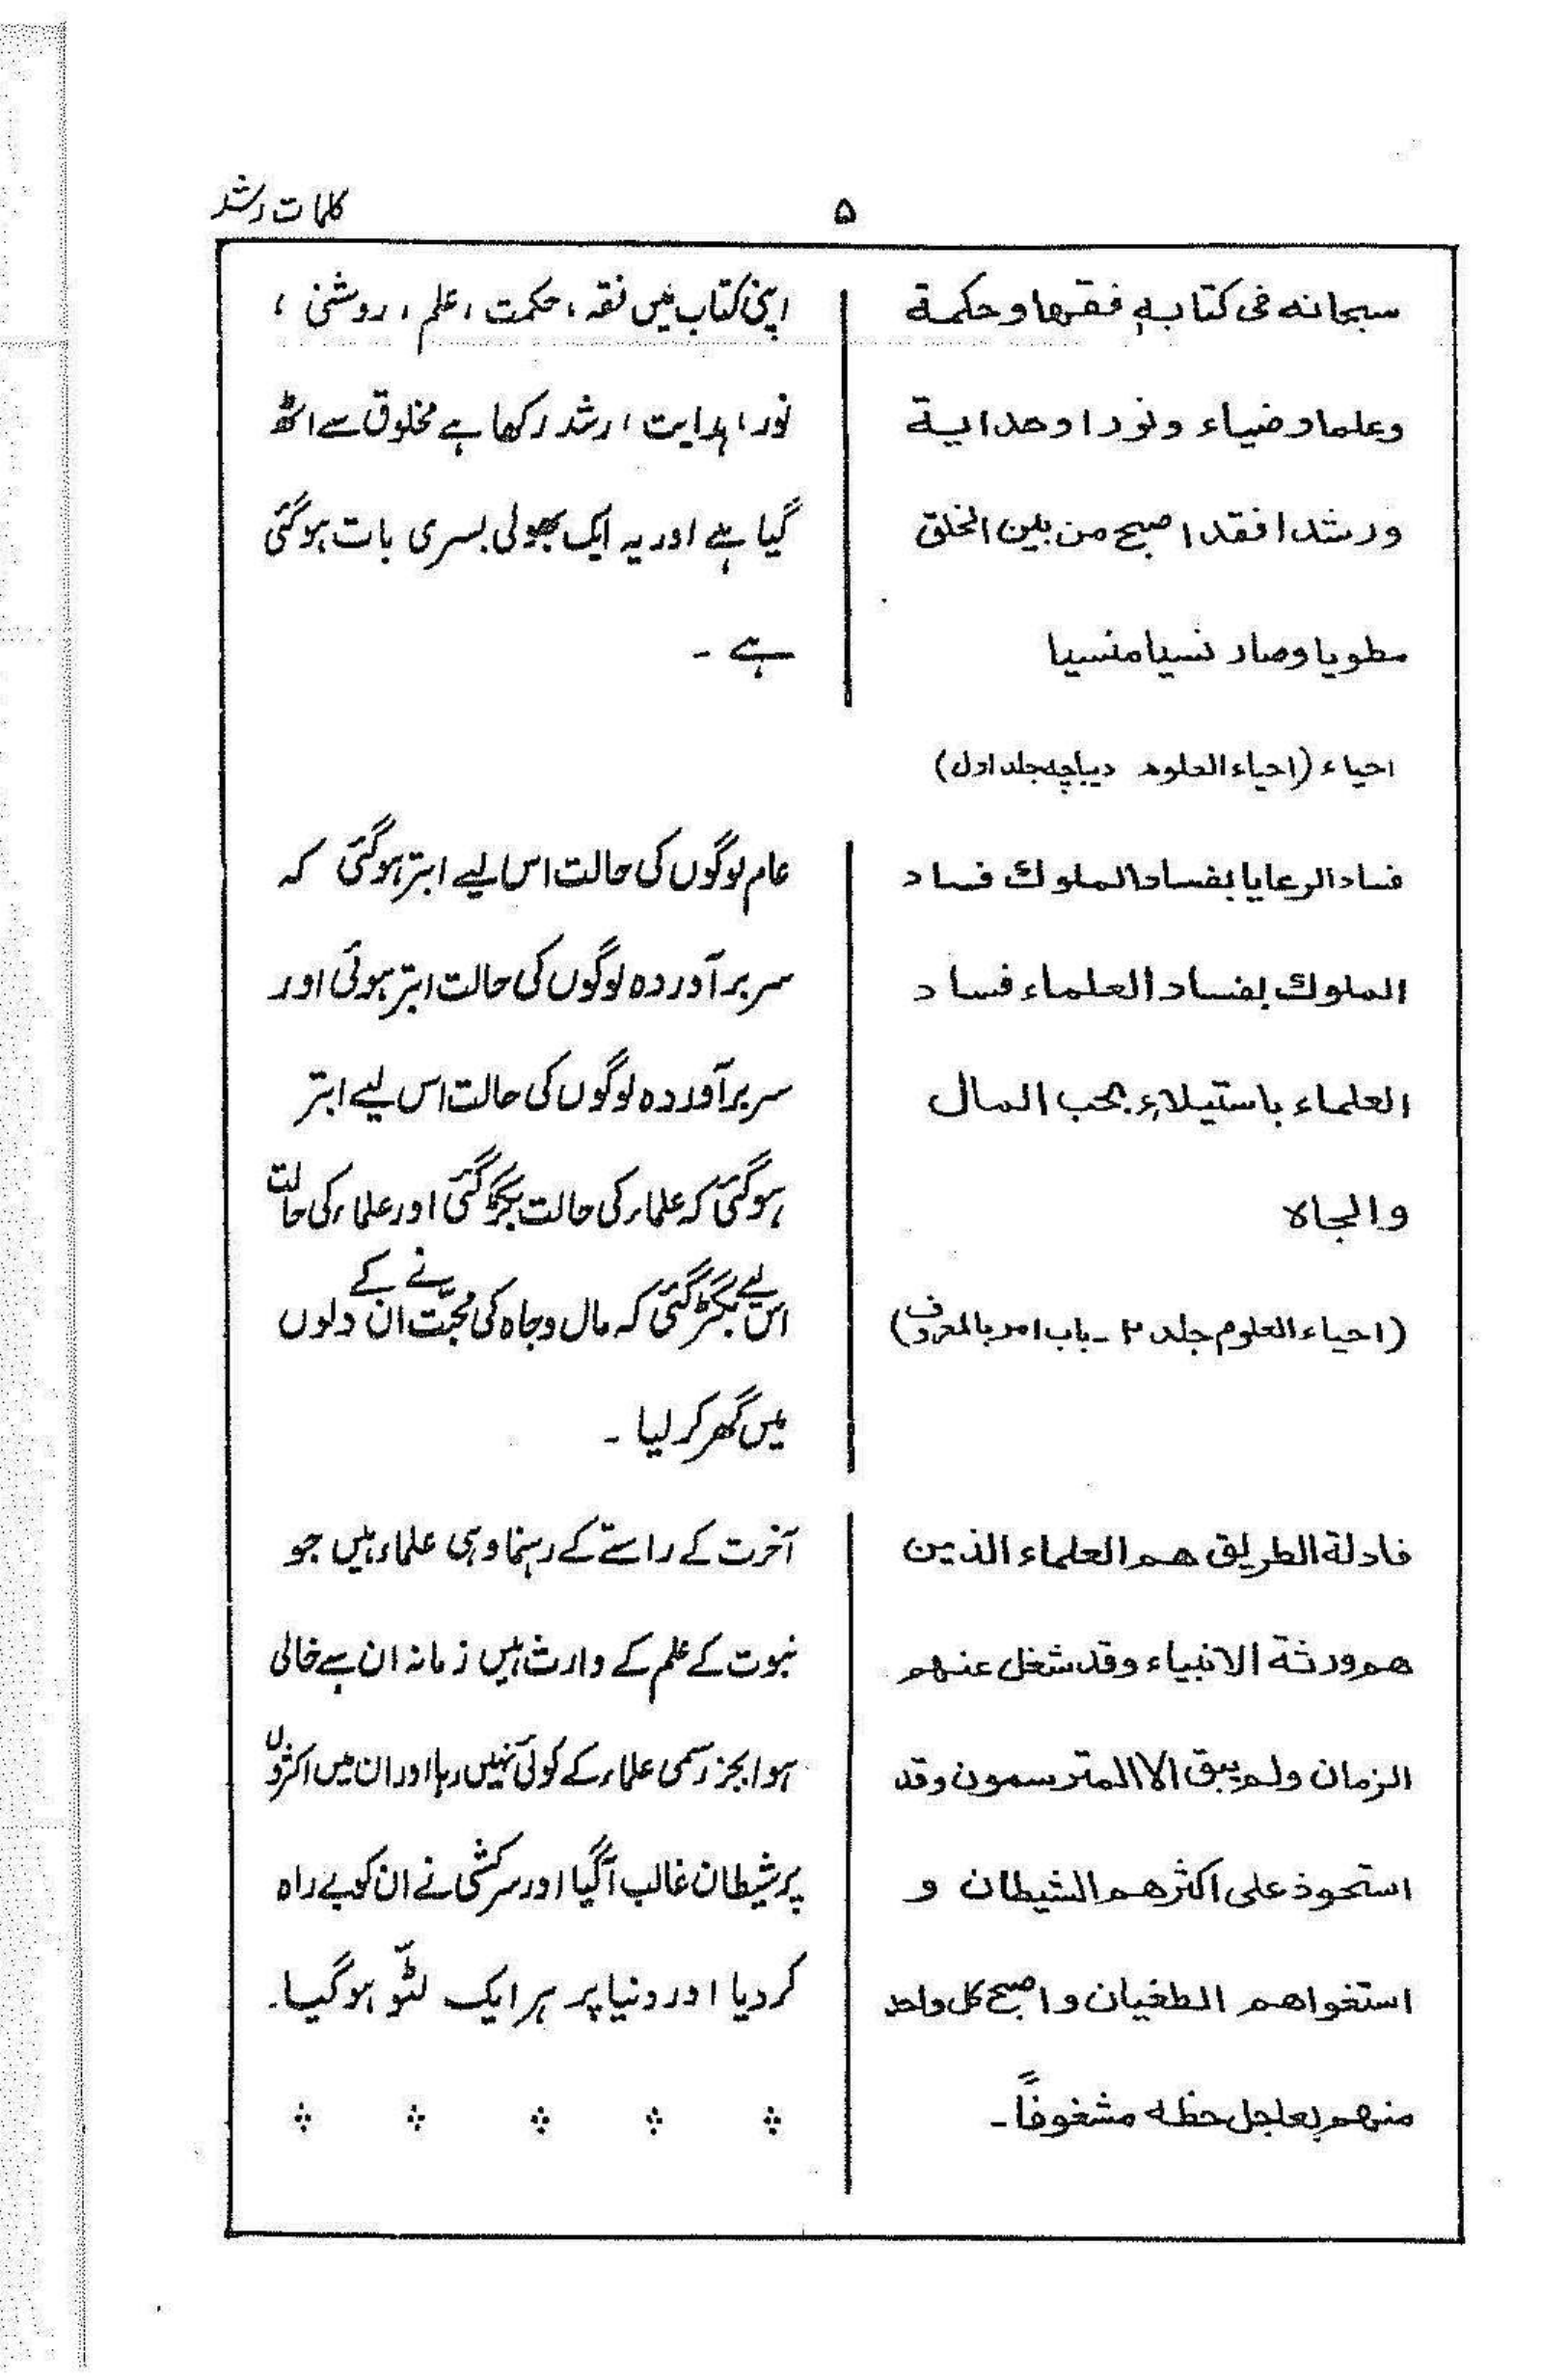 کلمات رشد
۵
سبحانه فی کتابہٖ فقها و حکمة
وعلما و ضیاء و نورا و ھدایة
ورشدا فقد اصبح من بین الخلق
مطویا وصار نسیا منسیا
اپنی کتاب میں فقہ، حکمت، علم، روشنی،
نور، ہدایت، رشد رکھا ہے مخلوق سے اٹھ
گیا ہے اور یہ ایک بھولی بسری بات ہو گئی
ہے ۔
احیاء (احیاء العلوم دیباچہ جلد اول)
فساد الرعایا بفساد الملوك فساد
الملوك بفساد العلماء فساد
العلماء باستیلاءِ بحب المال
والجاہ
(احیاء العلوم جلد ۲ ۔ باب امر بالمعروف)
عام لوگوں کی حالت اس لیے ابتر ہو گئی کہ
سربرآوردہ لوگوں کی حالت ابتر ہوئی اور
سربرآوردہ لوگوں کی حالت اس لیے ابتر
ہو گئی کہ علماء کی حالت بگڑ گئی اور علماء کی حالت
اس لیے بگڑ گئی کہ مال و جاہ کی محبّت نے ان کے دلوں
میں گھر کر لیا ۔
فادلة الطریق ھم العلماء الذین
ھم ورثة الانبیاء وقد شغل عنھم
الزمان ولم یبق الا المترسمون وقد
استحوذ علی اکثرھم الشیطان و
استغواھم الطغیان و اصبح کل واحد
منھم بعاجل حظه مشغوفاً ۔
آخرت کے راستے کے رہنما وہی علماء ہیں جو
نبوت کے علم کے وارث ہیں زمانہ ان سے خالی
ہوا بجز رسمی علماء کے کوئی نہیں رہا اور ان میں اکثروں
پر شیطان غالب آگیا اور سرکشی نے ان کو بے راہ
کر دیا اور دنیا پر ہر ایک لٹّو ہو گیا۔